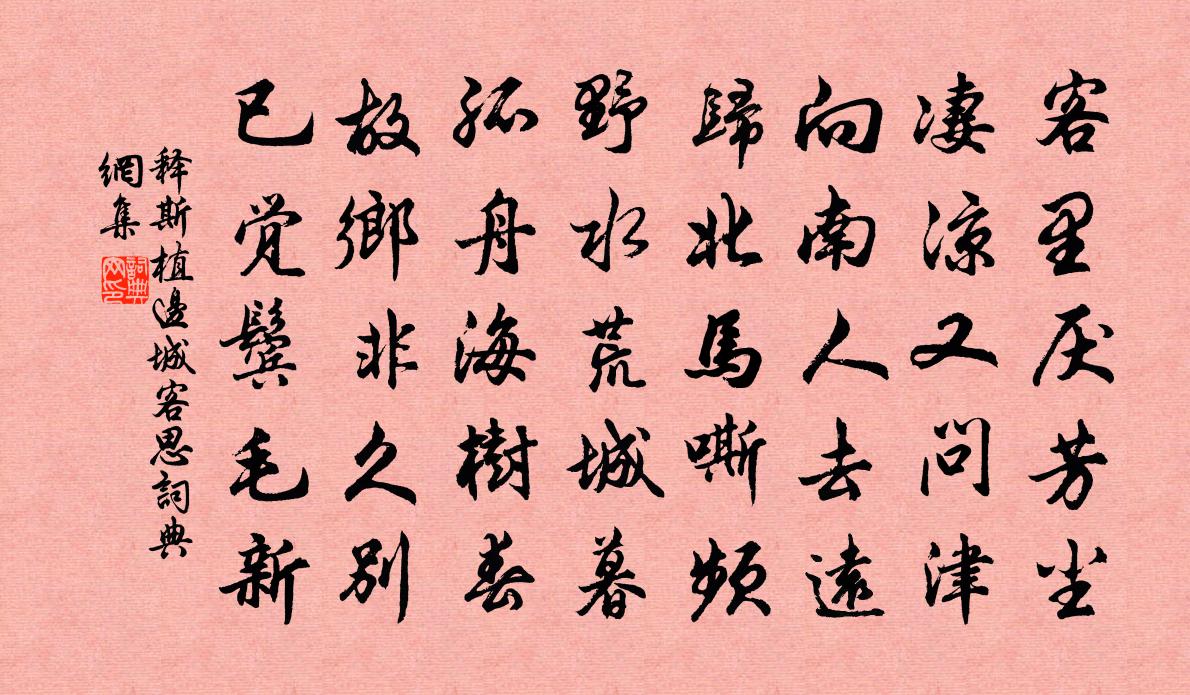 客里厌芳尘
凄凉又问津
向南人去遠
歸北馬嘶频
野水荒城暮
孤舟海樹春
故鄉非久别
已覚鬓毛新
释斯植邊城客思詞典
網集
詞典网印